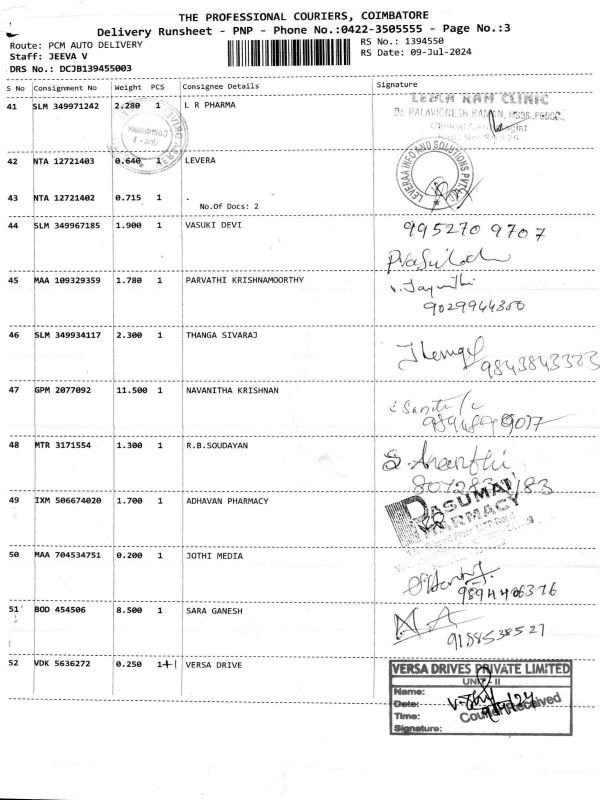 THE PROFESSIONAL COURIERS, COIMBATORE
Delivery Runsheet - PNP - Phone No.:0422-3505555 - Page No.:3
Route: PCM AUTO DELIVERY
Staff: JEEVA V
DRS No.: DCJB139455003
RS No.: 1394550
RS Date: 09-Jul-2024
S No Consignment No Weight PCS Consignee Details Signature
41 SLM 349971242 2.280 1 L R PHARMA
CLINIC
42 NTA 12721403 0.640 1 LEVERA
LEVERAA INFO AND SOLUTIONS PVT
43 NTA 12721402 0.715 1 .
No.Of Docs: 2
44 SLM 349967185 1.900 1 VASUKI DEVI
995270 9707
45 MAA 109329359 1.780 1 PARVATHI KRISHNAMOORTHY
46 SLM 349934117 2.300 1 THANGA SIVARAJ
47 GPM 2077092 11.500 1 NAVANITHA KRISHNAN
48 MTR 3171554 1.300 1 R.B.SOUDAYAN
S. Ananthi
49 IXM 506674020 1.700 1 ADHAVAN PHARMACY
PHARMACY
50 MAA 704534751 0.200 1 JOTHI MEDIA
51 BOD 454506 8.500 1 SARA GANESH
9188538527
52 VDK 5636272 0.250 1+1 VERSA DRIVE
VERSA DRIVES PRIVATE LIMITED
UNIT - II
Name:
Date:
Time:
Signature:
Courier Received